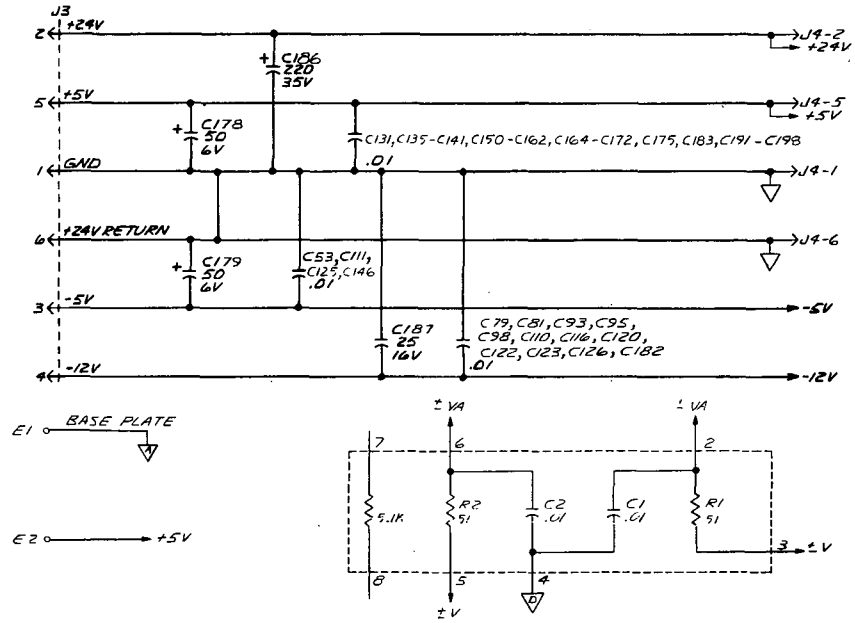 J3
2 +24V J4-2
+24V
+ C186
220
35V
5 +5V J4-5
+5V
+ C178
50
6V
C131, C135-C141, C150-C162, C164-C172, C175, C183, C191-C198
.01
1 GND J4-1
6 +24V RETURN J4-6
+ C179
50
6V
C53, C111,
C125, C146
.01
3 -5V -5V
C187
25
16V
C79, C81, C93, C95,
C98, C110, C116, C120,
C122, C123, C126, C182
.01
4 -12V -12V
E1 BASE PLATE
± VA
± VA
7 6 2
5.1K
R2
51
C2
.01
C1
.01
R1
51
E2 +5V
3 ±V
8 5 4
D
±V